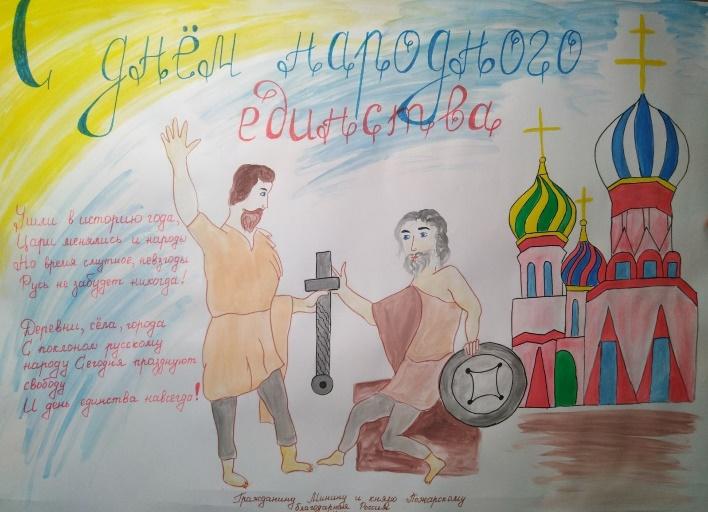 С днём народного
единства
Ушли в историю года,
Цари менялись и народы
Но время смутное, невзгоды
Русь не забудет никогда!
Деревни, сёла, города
С поклоном русскому
народу Сегодня празднуют
свободу
И день единства навсегда!
Гражданину Минину и князю Пожарскому
благодарная Россия